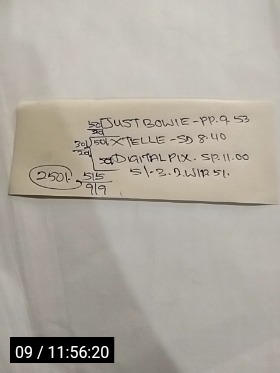 50/ JUST BOWIE - PP. 9.53
50/ XTELLE - SD 8.40
50/ DIGITAL PIX. SP. 11.00
250/. 5/5 5/-3. D.WIR 5/.
9/9
09 / 11:56:20